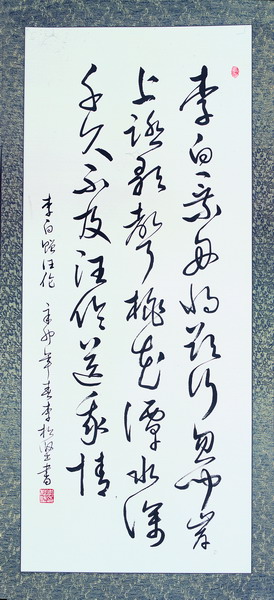 李白乘舟將欲行忽聞岸
上踏歌聲桃花潭水深
千尺不及汪倫送我情
李白贈汪倫 辛卯年春李松堅書